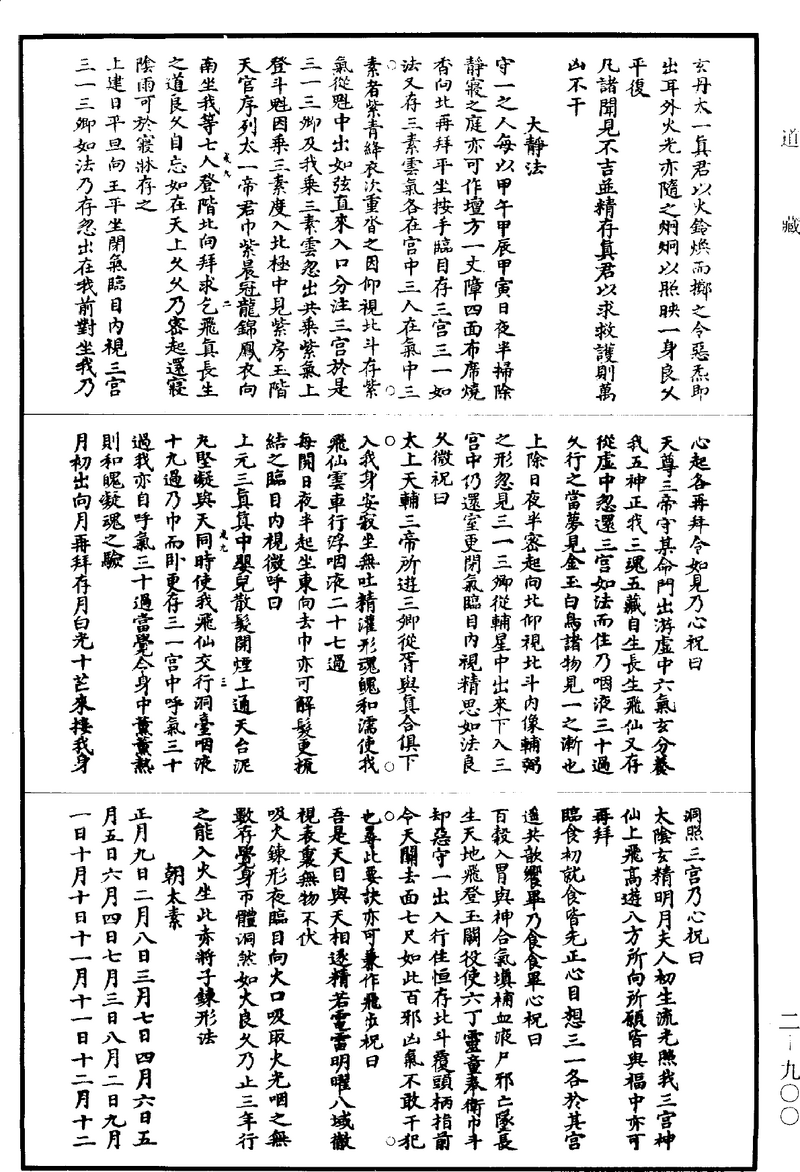 道藏
玄丹太一真君以火鈴煥而擲之令惡炁即
出耳外火光亦隨之炯炯以照映一身良久
平復
凡諸聞見不吉並精存真君以求救護則萬
凶不干
大靜法
守一之人每以甲午甲辰甲寅日夜半掃除
靜寢之庭亦可作壇方一丈障四面布席燒
香向北再拜平坐按手臨目存三宫三一如
法又存三素雲氣各在宫中三人在氣中三
素者紫青絳衣次重沓之因仰視北斗存紫
氣從魁中出如弦直來入口分注三宫於是
三一三卿及我乘三素雲忽出共乘紫氣上
登斗魁因乘三素度入北極中見紫房玉階
天官序列太一帝君巾紫晨冠龍錦鳳衣向
南坐我等七人登階北向拜求乞飛真長生
之道良久自忘如在天上久久乃密起還寢
陰雨可於寢牀存之
上建日平旦向王平坐閉氣臨目内視三宫
三一三卿如法乃存忽出在我前對坐我乃
心起各再拜令如見乃心祝曰
天尊三帝守某命門出游虛中六氣玄分養
我五神正我三魂五藏自生長生飛仙又存
從虛中忽還三宫如法而住乃咽液三十過
久行之當夢見金玉白鳥諸物見一之漸也
上除日夜半密起向北仰視北斗内像輔弼
之形忽見三一三卿從輔星中出來下入三
宫中仍還室更閉氣臨目内視精思如法良
久微祝曰
太上天輔三帝所遊三卿從胥與真合俱下
入我身安寂坐無吐精灌形魂魄和濡使我
飛仙雲車行浮咽液二十七過
每開日夜半起坐東向去巾亦可解髮更梳
結之臨目内視微呼曰
上元三真真中嬰兒散髮開煙上通天台泥
丸堅凝與天同時使我飛仙交行洞臺咽液
十九過乃巾而卧更存三一宫中呼氣三十
過我亦自呼氣三十過當覺令身中薰薰熱
則和魄凝魂之驗
月初出向月再拜存月白光十芒來接我身
洞照三宫乃心祝曰
太陰玄精明月夫人初生流光照我三宫神
仙上飛高遊八方所向所願皆與福中亦可
再拜
臨食初就食皆先正心目想三一各於其宫
遥共歆饗畢乃食食畢心祝曰
百穀入胃與神合氣填補血液尸邪亡墜長
生天地飛登玉闕役使六丁靈童奉衛巾斗
却惡守一出入行住恒存北斗覆頭柄指前
令天關去面七尺如此百邪凶氣不敢干犯
也尋此要訣亦可兼作飛步祝曰
吾是天目與天相逐精若電雷明曜八域徹
視表裏無物不伏
吸火鍊形夜臨目向火口吸取火光咽之無
數存覺身帀體洞然如火良久乃止三年行
之能入火坐此赤將子鍊形法
朝太素
正月九日二月八日三月七日四月六日五
月五日六月四日七月三日八月二日九月
一日十月十日十一月十一日十二月十二
二-九〇〇